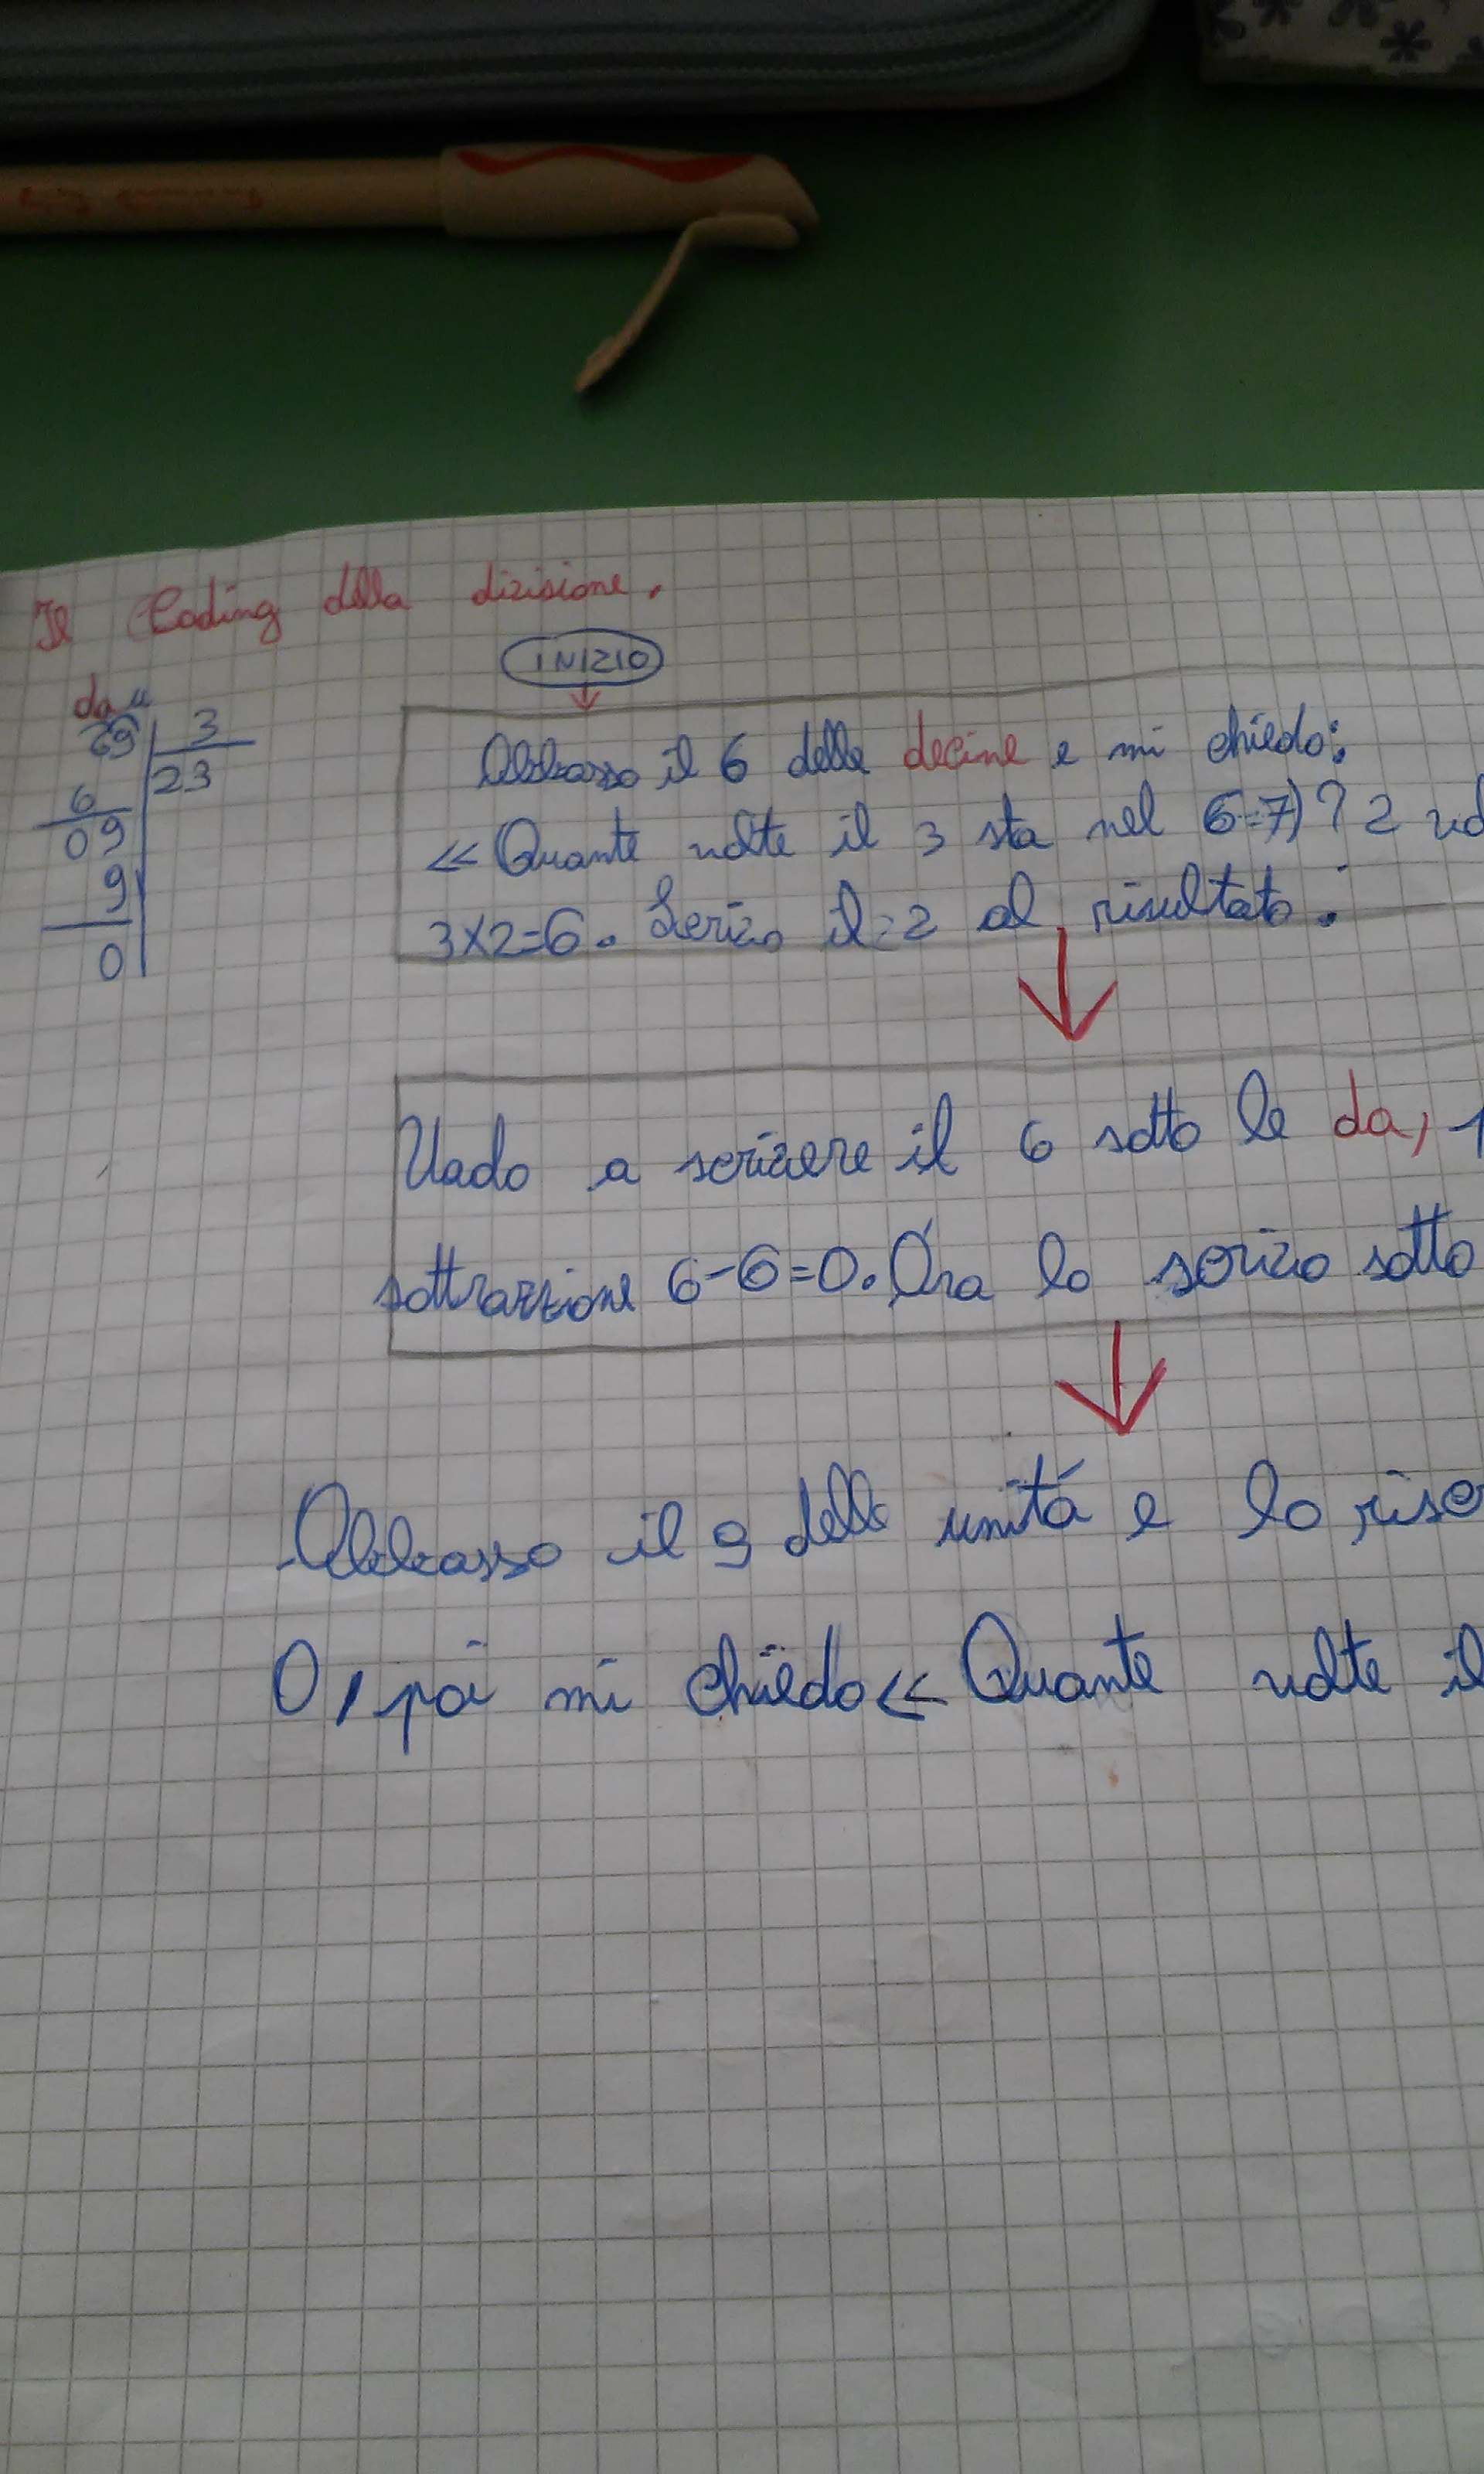 Il Coding della divisione.
INIZIO
da u
69 3
6 23
09
9
0
Abbasso il 6 delle decine e mi chiedo:
≪ Quante volte il 3 sta nel 6 ? 2 vol
3x2=6. Scrivo il 2 al risultato.
Vado a scrivere il 6 sotto le da,
sottrazione 6-6=0. Ora lo scrivo sotto
Abbasso il 9 delle unitá e lo riscr
0, poi mi chiedo ≪ Quante volte il